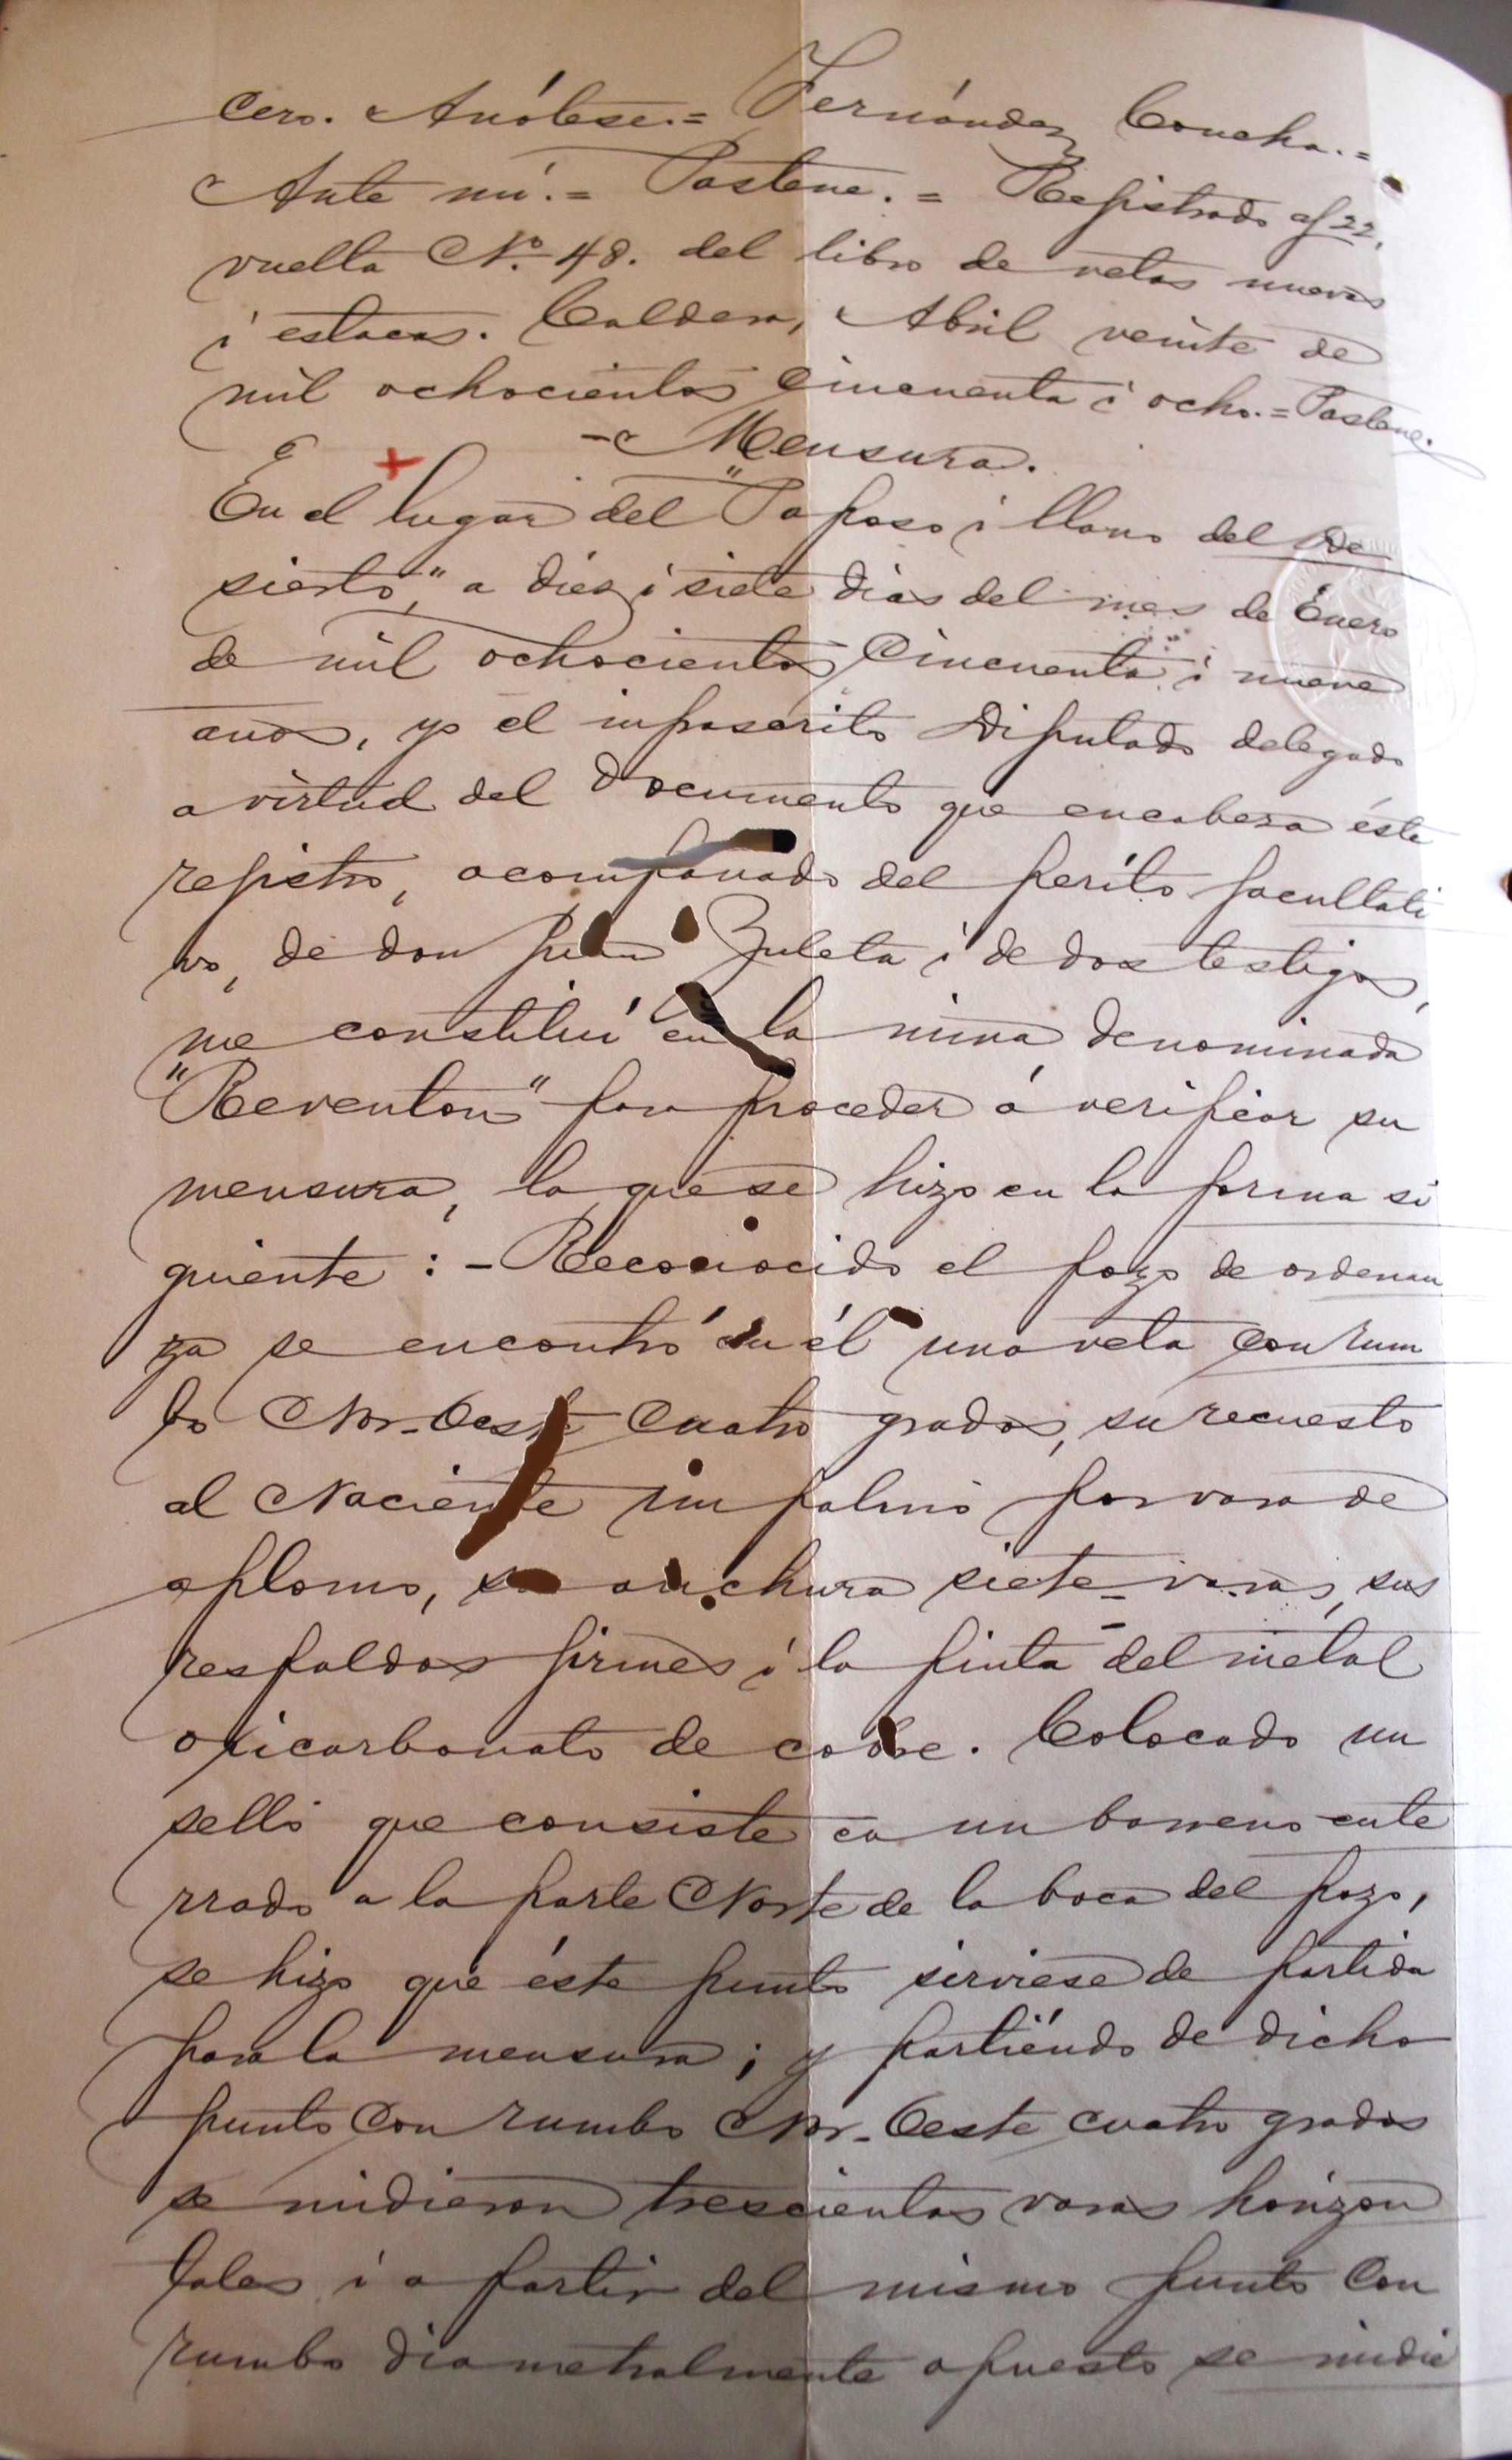 cero. Anótese.= Fernández Concha.=
Ante mí.= Pastene.= Rejistrado a f 22,
vuelta N.º 48. del libro de vetas nuevas
i estacas. Caldera, Abril veinte de
mil ochocientos cincuenta i ocho.= Pastene.
- Mensura.
En el lugar del "Paposo i llano del De
sierto," a diez i siete dias del mes de Enero
de mil ochocientos cincuenta i nueve
anos, yo el infrascrito Diputado delegado
a virtud del documento que encabeza éste
rejistro, acompañado del perito facultati
vo, de don Zuleta i de dos testigos,
me constituí en la mina denominada
"Reventon" para proceder á verificar su
mensura, la que se hizo en la forma si
guiente : - Reconocido el pozo de ordenan
za se encontró en él una veta con rum
bo Nor-Oeste cuatro grados, su recuesto
al Naciente un palmo por vara de
aplomo, su anchura siete varas, sus
respaldos firmes i la pinta del metal
oxicarbonato de cobre. Colocado un
sello que consiste en un barreno ente
rrado a la parte Norte de la boca del pozo,
se hizo que éste punto sirviese de partida
para la mensura ; y partiendo de dicho
punto con rumbo Nor-Oeste cuatro grados
se midieron trescientas varas horizon
tales i a partir del mismo punto con
rumbo diametralmente opuesto se midie